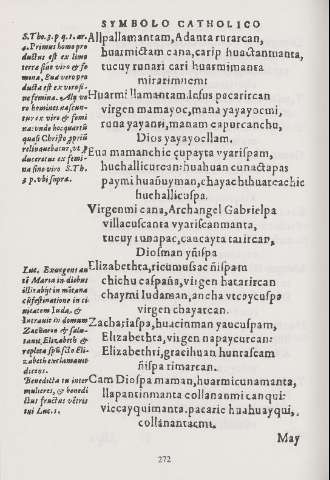 SYMBOLO CATHOLICO
S. Tho. 3. p. q. 1. ar.
4. Primus homo pro
ductus est ex limo
terræ sine viro & fœ
mina. Eua vero pro
ducta est ex viro si-
ne femina. Alij ve-
ro homines nascun-
tur ex viro & femi
na: unde hoc quartũ
quasi Christo propriũ
relinquebatur, vt p
duceretur ex femi-
na sine viro. S. Th.
3 p. vbi supra.
Allpallamantam, Adanta rurarcan,
huarmictam cana, carip huactantuanta,
tucuy runari cari huarmimanta
mirarimuemi
Huarmi llamantam. Iesus pacarircan
virgen mamayoc, mana yayayocmi,
runa yayanri, manam capurcanchu,
Dios yayayocllam.
Eua mamanchic çupayta vyarispam,
huchallicurcan: huahuan cunactapas
paymi huañuyman, chayachihuarcachic
huchallicuspa.
Virgenmi cana, Archangel Gabrielpa
villacuscanta vyariscanmanta,
tucuy runapac, caucayta tarircan,
Diosman yñispa
Luc. Exurgens au
tẽ Maria in diebus
illis abijt in mõtana
cũ festinatione in ci
uitatem Iuda, &
Intrauit in domum
Zachariæ & salu-
tauit Elizabeth &
repleta spũ scto Eli-
zabeth exclamauit
dicens.
Benedicta tu inter
mulieres, & benedi
ctus fructus vẽtris
tui Luc. 1.
Elizabethta, ricumussac ñispam
chichu caspaña, virgen hatarircan
chaymi Iudaman, ancha vtcaycuspa
virgen chayarcan.
Zachariaspa, huacinman yaucuspam,
Elizabethta, virgen napaycurcan:
Elizabethri, gracihuan huntascam
ñispa rimarcan.
Cam Diospa maman, huarmicunamanta,
llapantinmanta collananmi canqui:
viccayquimanta. pacaric huahuayqui,
collanantacmi.
May
272